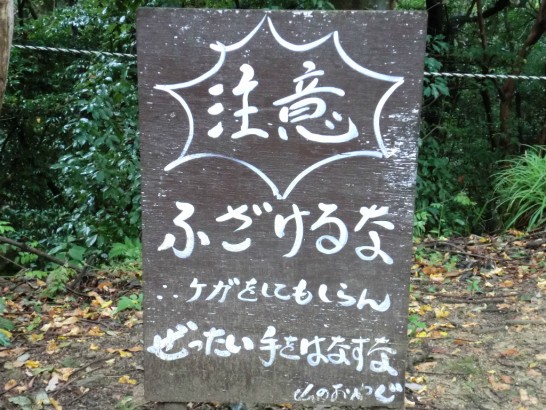 注意
ふざけるな
∴ケガをしてもしらん
ぜったい手をはなすな
山のおやじ